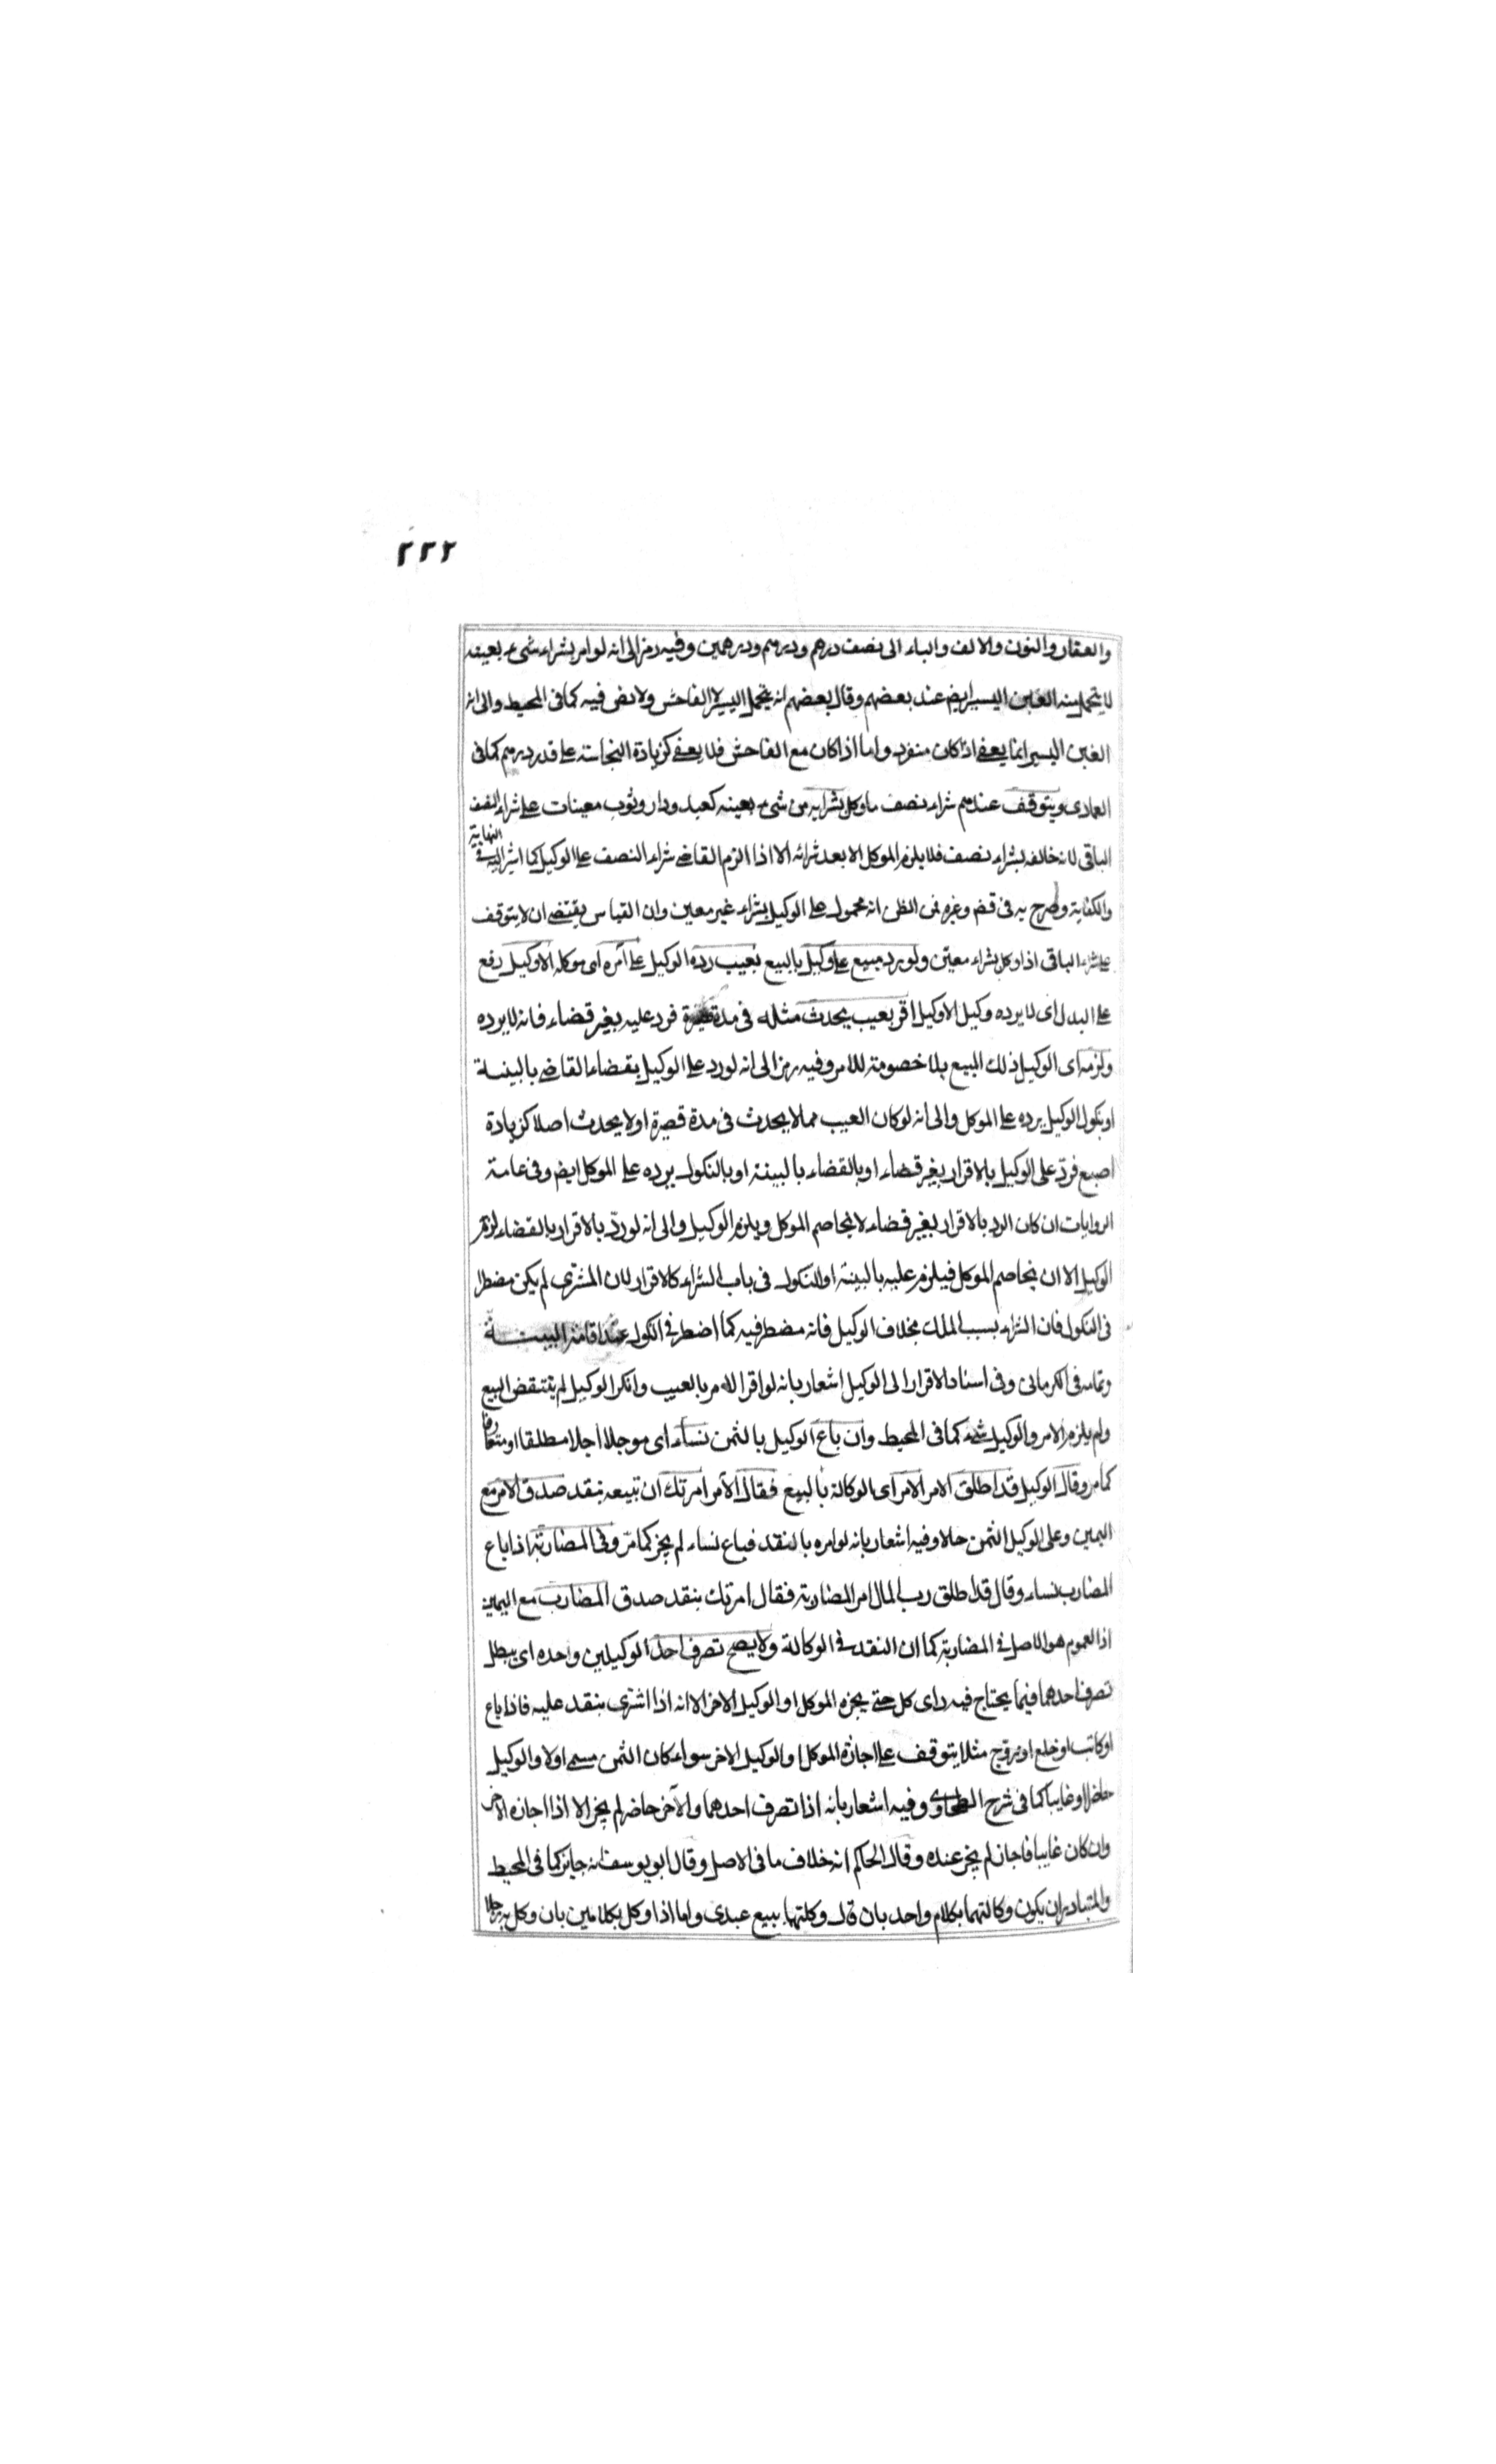 ٢٢٢
والعقار والنون والالف والباء الى نصف درهم ودرهم ودرهمين وفيه رمز الى انه لو امر بشراء شىء بعينه
لا يتحمل منه الغبن اليسير ايض عند بعضهم وقال بعضهم انه يتحمل اليسير لا الفاحش ولا نص فيه كما فى المحيط والى انه
الغبن اليسير انما يعفى اذا كان منفرد واما اذا كان مع الفاحش فلا يعفى كزيادة النجاسة على قدر درهم كما فى
العمادى ويتوقف عندهم شراء نصف ما وكل بشرايه من شىء بعينه كعبد ودار وثوب معينات على شراء النصف
الباقى لانه خالفه بشراء نصف فلا يلزم الموكل الا بعد شرائه الا اذا الزم القاضى شراء النصف على الوكيل كما اشير اليه فى النهاية
والكفاية وصرح به فى قضـ وغيره فمن الظن انه محمول على الوكيل بشراء غير معين وان القياس يقتضى ان لا يتوقف
على شراء الباقى اذا وكل بشراء معين ولو رد مبيع على وكيل بالبيع بعيب رده الوكيل على آمره اى موكله الا وكيل رفع
على البدل اى لا يرده وكيل الا وكيل اقر بعيب يحدث مثله فى مدة فرد عليه بغير قضاء فانه لا يرده
ولزمه اى الوكيل ذلك المبيع بلا خصومة للامر وفيه رمز الى انه لو رد على الوكيل بقضاء القاضى بالبينة
او بنكول الوكيل يرده على الموكل والى انه لو كان العيب مما لا يحدث فى مدة قصيرة او لا يحدث اصلا كزيادة
اصبع فردّ على الوكيل بالاقرار بغير قضاء او بالقضاء بالبينة او بالنكول يرده على الموكل ايض وفى عامة
الروايات ان كان الرد بالاقرار بغير قضاء لا يخاصم الموكل ويلزم الوكيل والى انه لو ردّ بالاقرار بالقضاء لزم
الوكيل الا ان يخاصم الموكل فيلزم عليه بالبينة او النكول فى باب الشراء كالاقرار لان المشترى لم يكن مضطرا
فى النكول فان الشراء بسبب الملك بخلاف الوكيل فانه مضطر فيه كما اضطر فى النكول عند اقامة البينة
وتمامه فى الكرمانى وفى اسناد الاقرار الى الوكيل اشعار بانه لو اقر الامر بالعيب وانكر الوكيل لم ينتقض البيع
ولم يلزم الامر والوكيل شىء كما فى المحيط وان باع الوكيل بالثمن نساء اى موجلا اجلا مطلقا او متعارفا
كما مر وقال الوكيل قد اطلق الامر الامر اى الوكالة بالبيع فقال الآمر امرتك ان تبيعه بنقد صدق الامر مع
اليمين وعلى الوكيل الثمن حلا وفيه اشعار بانه لو امره بالنقد فباع نساء لم يجز كما مرّ وفى المضاربة اذا باع
المضارب نساء وقال قد اطلق رب المال امر المضاربة فقال امرتك بنقد صدق المضارب مع اليمين
اذ العموم هو الاصل فى المضاربة كما ان النقد فى الوكالة ولا يصح تصرف احد الوكيلين وحده اى يبطل
تصرف احدهما فيما يحتاج فيه راى كل حتى يجزه الموكل او الوكيل الاخر الا انه اذا اشترى بنقد عليه فاذا باع
او كاتب او خلع او تزوج مثلا يتوقف على اجازة الموكل او الوكيل الاخر سواء كان الثمن مسمى اولا والوكيل
حاضرا او غايبا كما فى شرح الطحاوى وفيه اشعار بانه اذا تصرف احدهما والآخر حاضر لم يجز الا اذا اجازه الاخر
وان كان غايبا فاجاز لم يجز عنده وقال الحاكم انه خلاف ما فى الاصل وقال ابو يوسف انه جايز كما فى المحيط
والمتبادر ان يكون وكالتهما بكلام واحد بان قال وكلتهما ببيع عبدى واما اذا وكل بكلامين بان وكل به رجلا